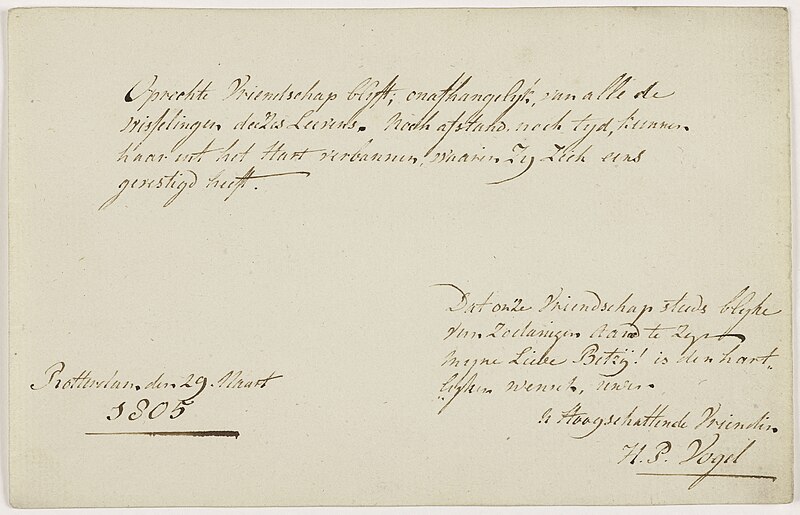 Oprechte Vriendschap blijft, onafhangelijk, van alle de
wisselingen deezes Leevens. Noch afstand, noch tyd, kunnen
haar uit het Hart verbannen, waarin Zy Zich eens
gevestigd heeft.
Dat onze Vriendschap steeds blyke
van zodanigen Aard te Zyn
Myne Lieve Betzÿ! is den hart-
lyken wensch, uwer
Hoogschattende Vriendin
H. P. Vogel
Rotterdam den 29 Maart
1805